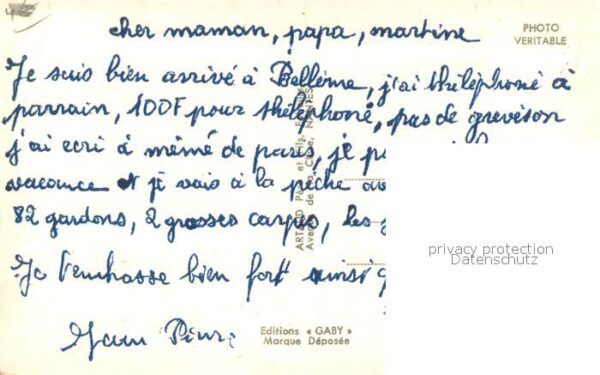 cher maman, papa, martine
PHOTO
VERITABLE
Je suis bien arrivé à Bellême, j'ai théléphoné à
parrain, 100F pour théléphoné, pas de
j'ai ecri à mémé de paris, je
vacance et je vais à la pêche
82 gardons, 2 grosses carpes, les
Je t'embrasse bien fort ainsi
Jean Pierre
Editions « GABY »
Marque Déposée
ARTAUD Père et Fils,
Avenue de la Close,
privacy protection
Datenschutz